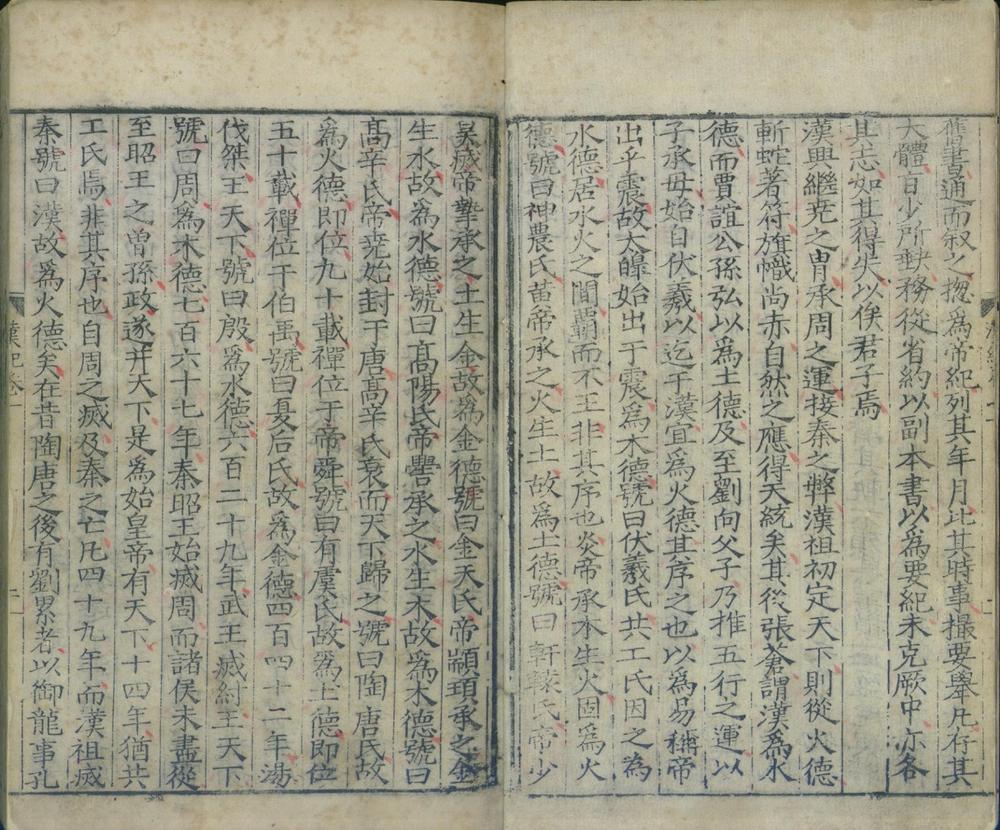 舊書通而叙之揔爲帝紀列其年月比其時事撮要舉凡存其
大體旨少所缺務從省約以副本書以爲要紀未克厥中亦各
其志如其得失以俟君子焉
漢興繼尭之胄承周之運接秦之弊漢祖初定天下則從火德
斬蛇著符旗幟尚赤自然之應得天統矣其後張蒼謂漢爲水
德而賈誼公孫弘以爲土德及至劉向父子乃推五行之運以
子承母始自伏羲以迄于漢宜爲火德其序之也以爲易稱帝
出乎震故太皥始出于震爲木德號曰伏羲氏共工氏因之爲
水德居水火之間霸而不王非其序也炎帝承木生火固爲火
德號曰神農氏黄帝承之火生土故爲土德號曰軒轅氏帝少
昊滅帝摯承之土生金故爲金德號曰金天氏帝顓頊承之金
生水故爲水德號曰髙陽氏帝嚳承之水生木故爲木德號曰
髙辛氏帝尭始封于唐髙辛氏衰而天下歸之號曰陶唐氏故
爲火德即位九十載禪位于帝舜號曰有虞氏故爲土德即位
五十載禪位于伯禹號曰夏后氏故爲金德四百四十二年湯
伐桀王天下號曰殷爲水德六百二十九年武王滅紂王天下
號曰周爲木德七百六十七年秦昭王始滅周而諸侯未盡從
至昭王之曽孫政遂并天下是爲始皇帝有天下十四年猶共
工氏焉非其序也自周之滅及秦之亡凡四十九年而漢祖滅
秦號曰漢故爲火德矣在昔陶唐之後有劉累者以御龍事孔
漢紀卷一